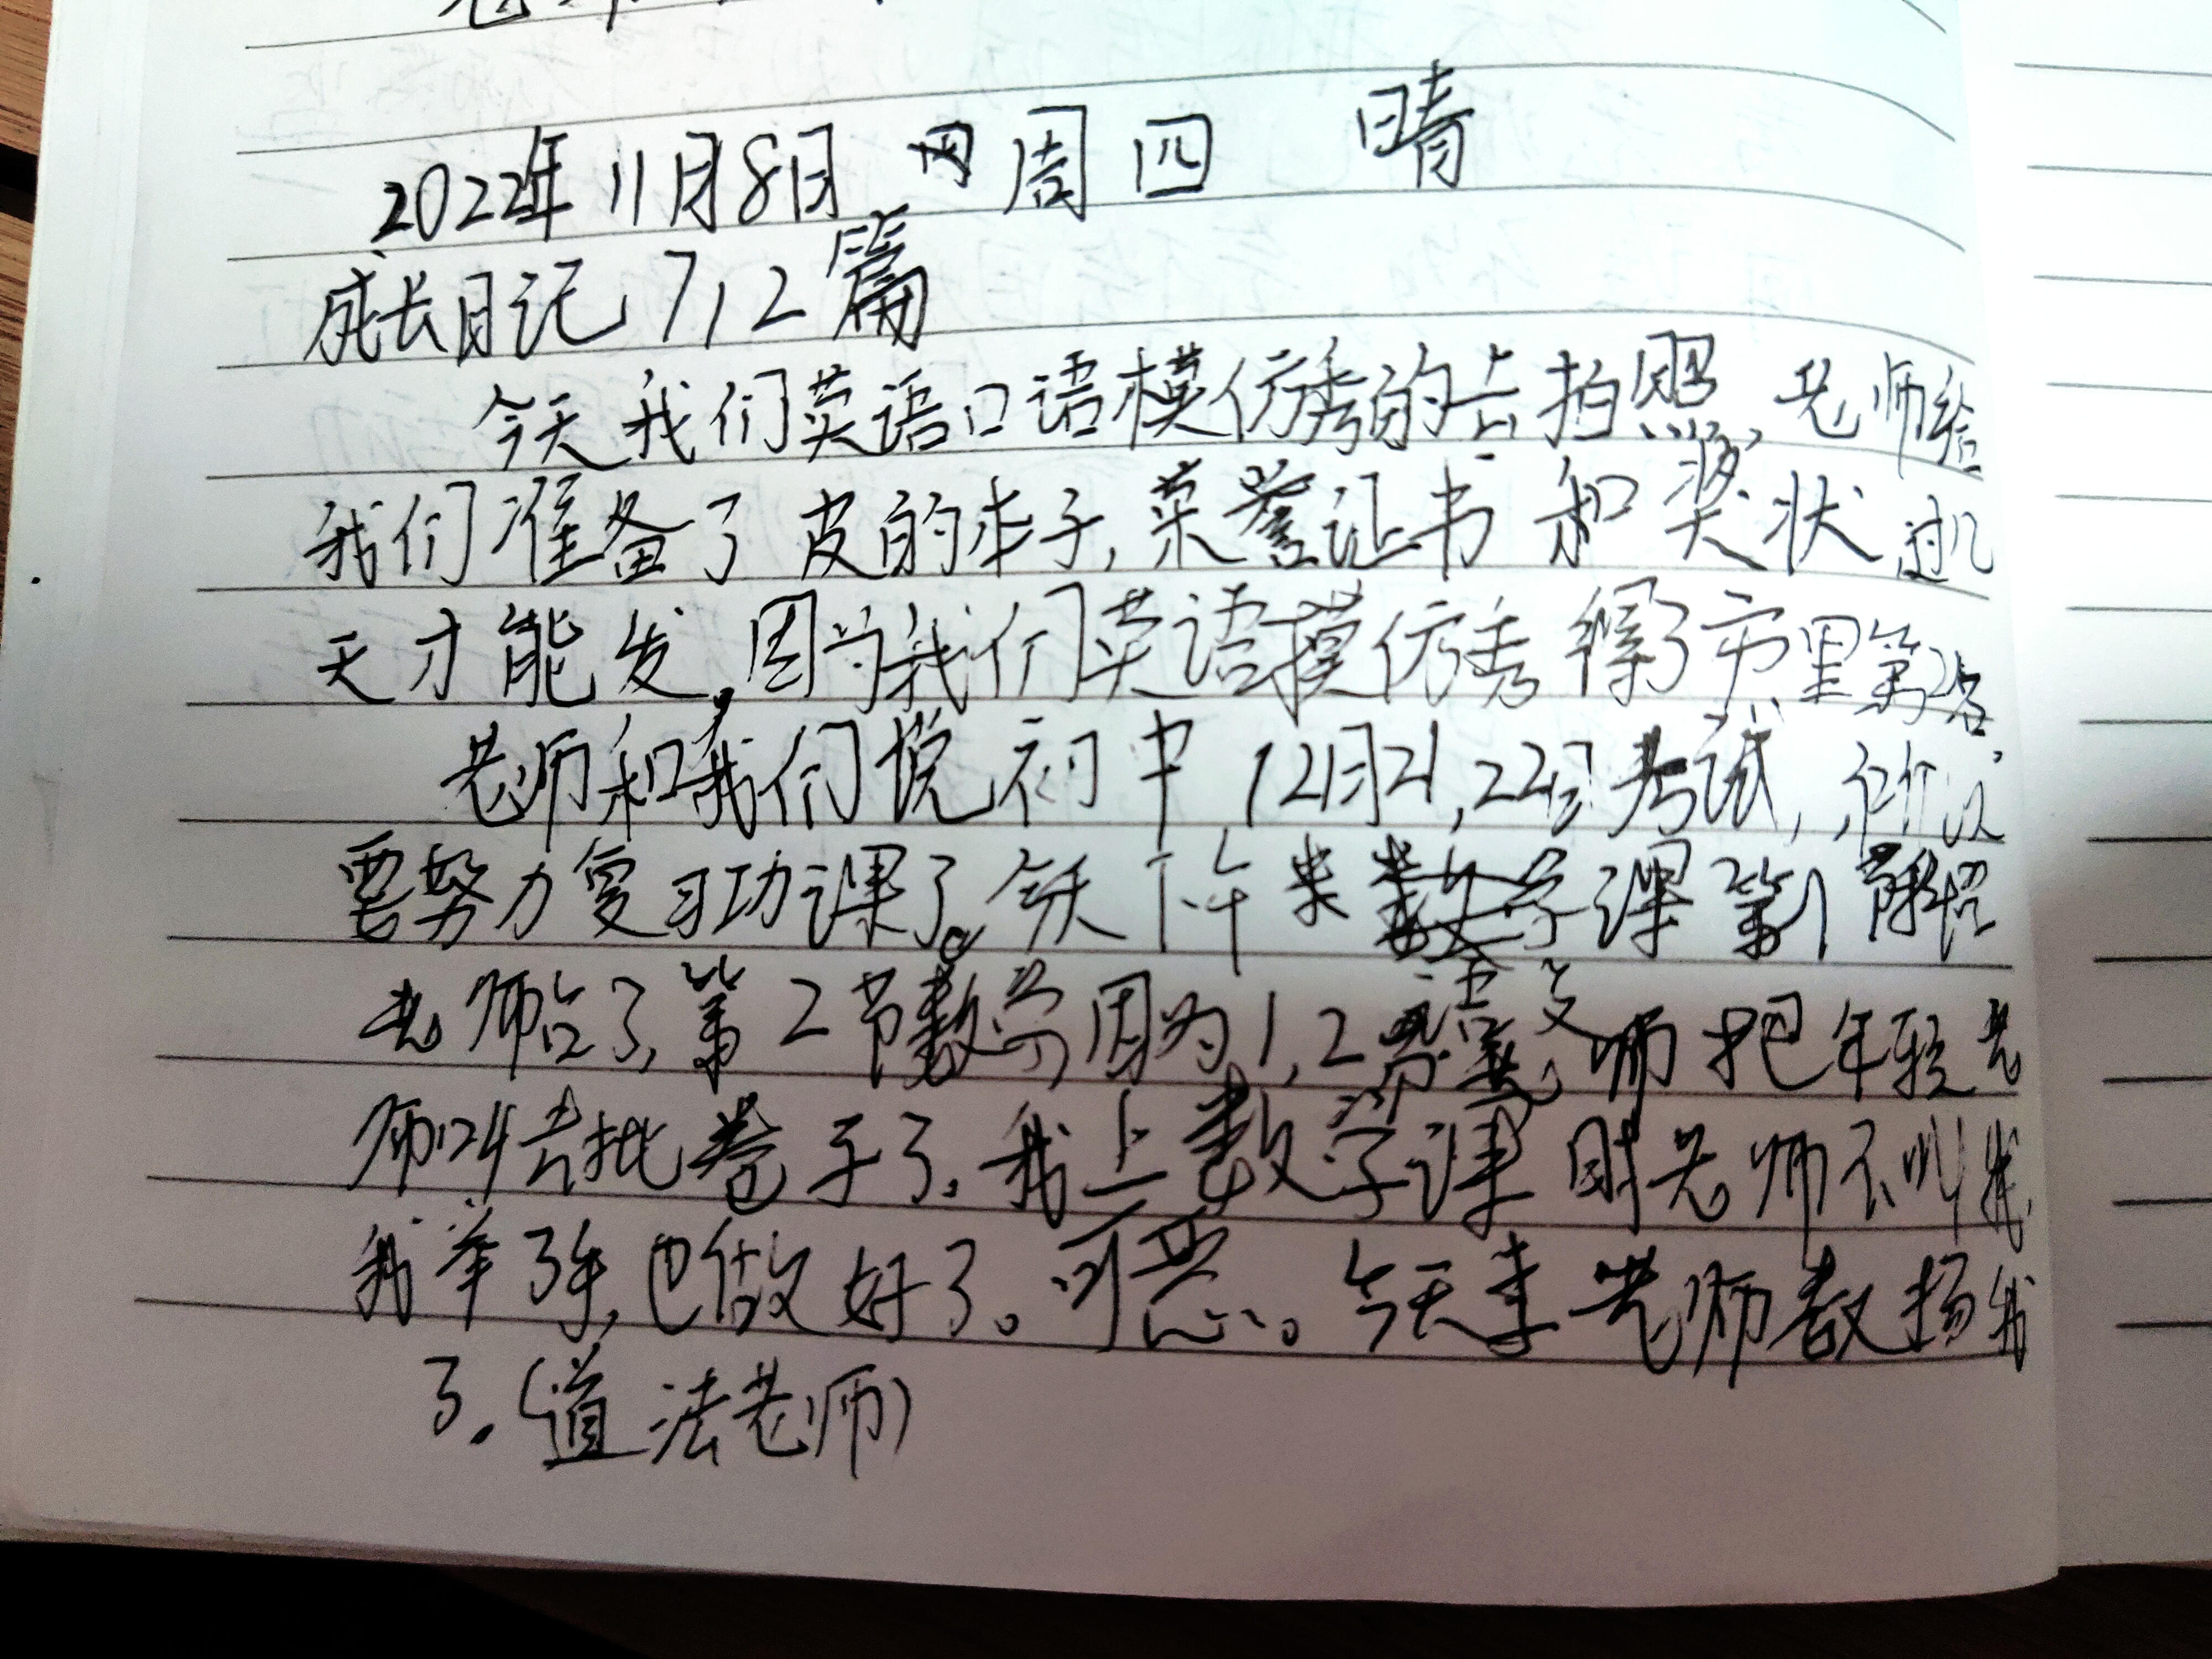 2022年11月8日 周四 晴
成长日记712篇
今天我们英语口语模仿秀的去拍照,老师给
我们准备了皮的本子,荣誉证书和奖状过几
天才能发。因为我们英语模仿秀得了市里第2名。
老师和我们说初中12月21,22日考试,所以
要努力复习功课了。今天下午来数学课第1节
老师给了,第2节数学因为1,2语文师把年轻老
师叫去批卷子了。我上数学课时老师不叫我
我举了手,也做好了。可恶。今天李老师表扬我
了.(道法老师)